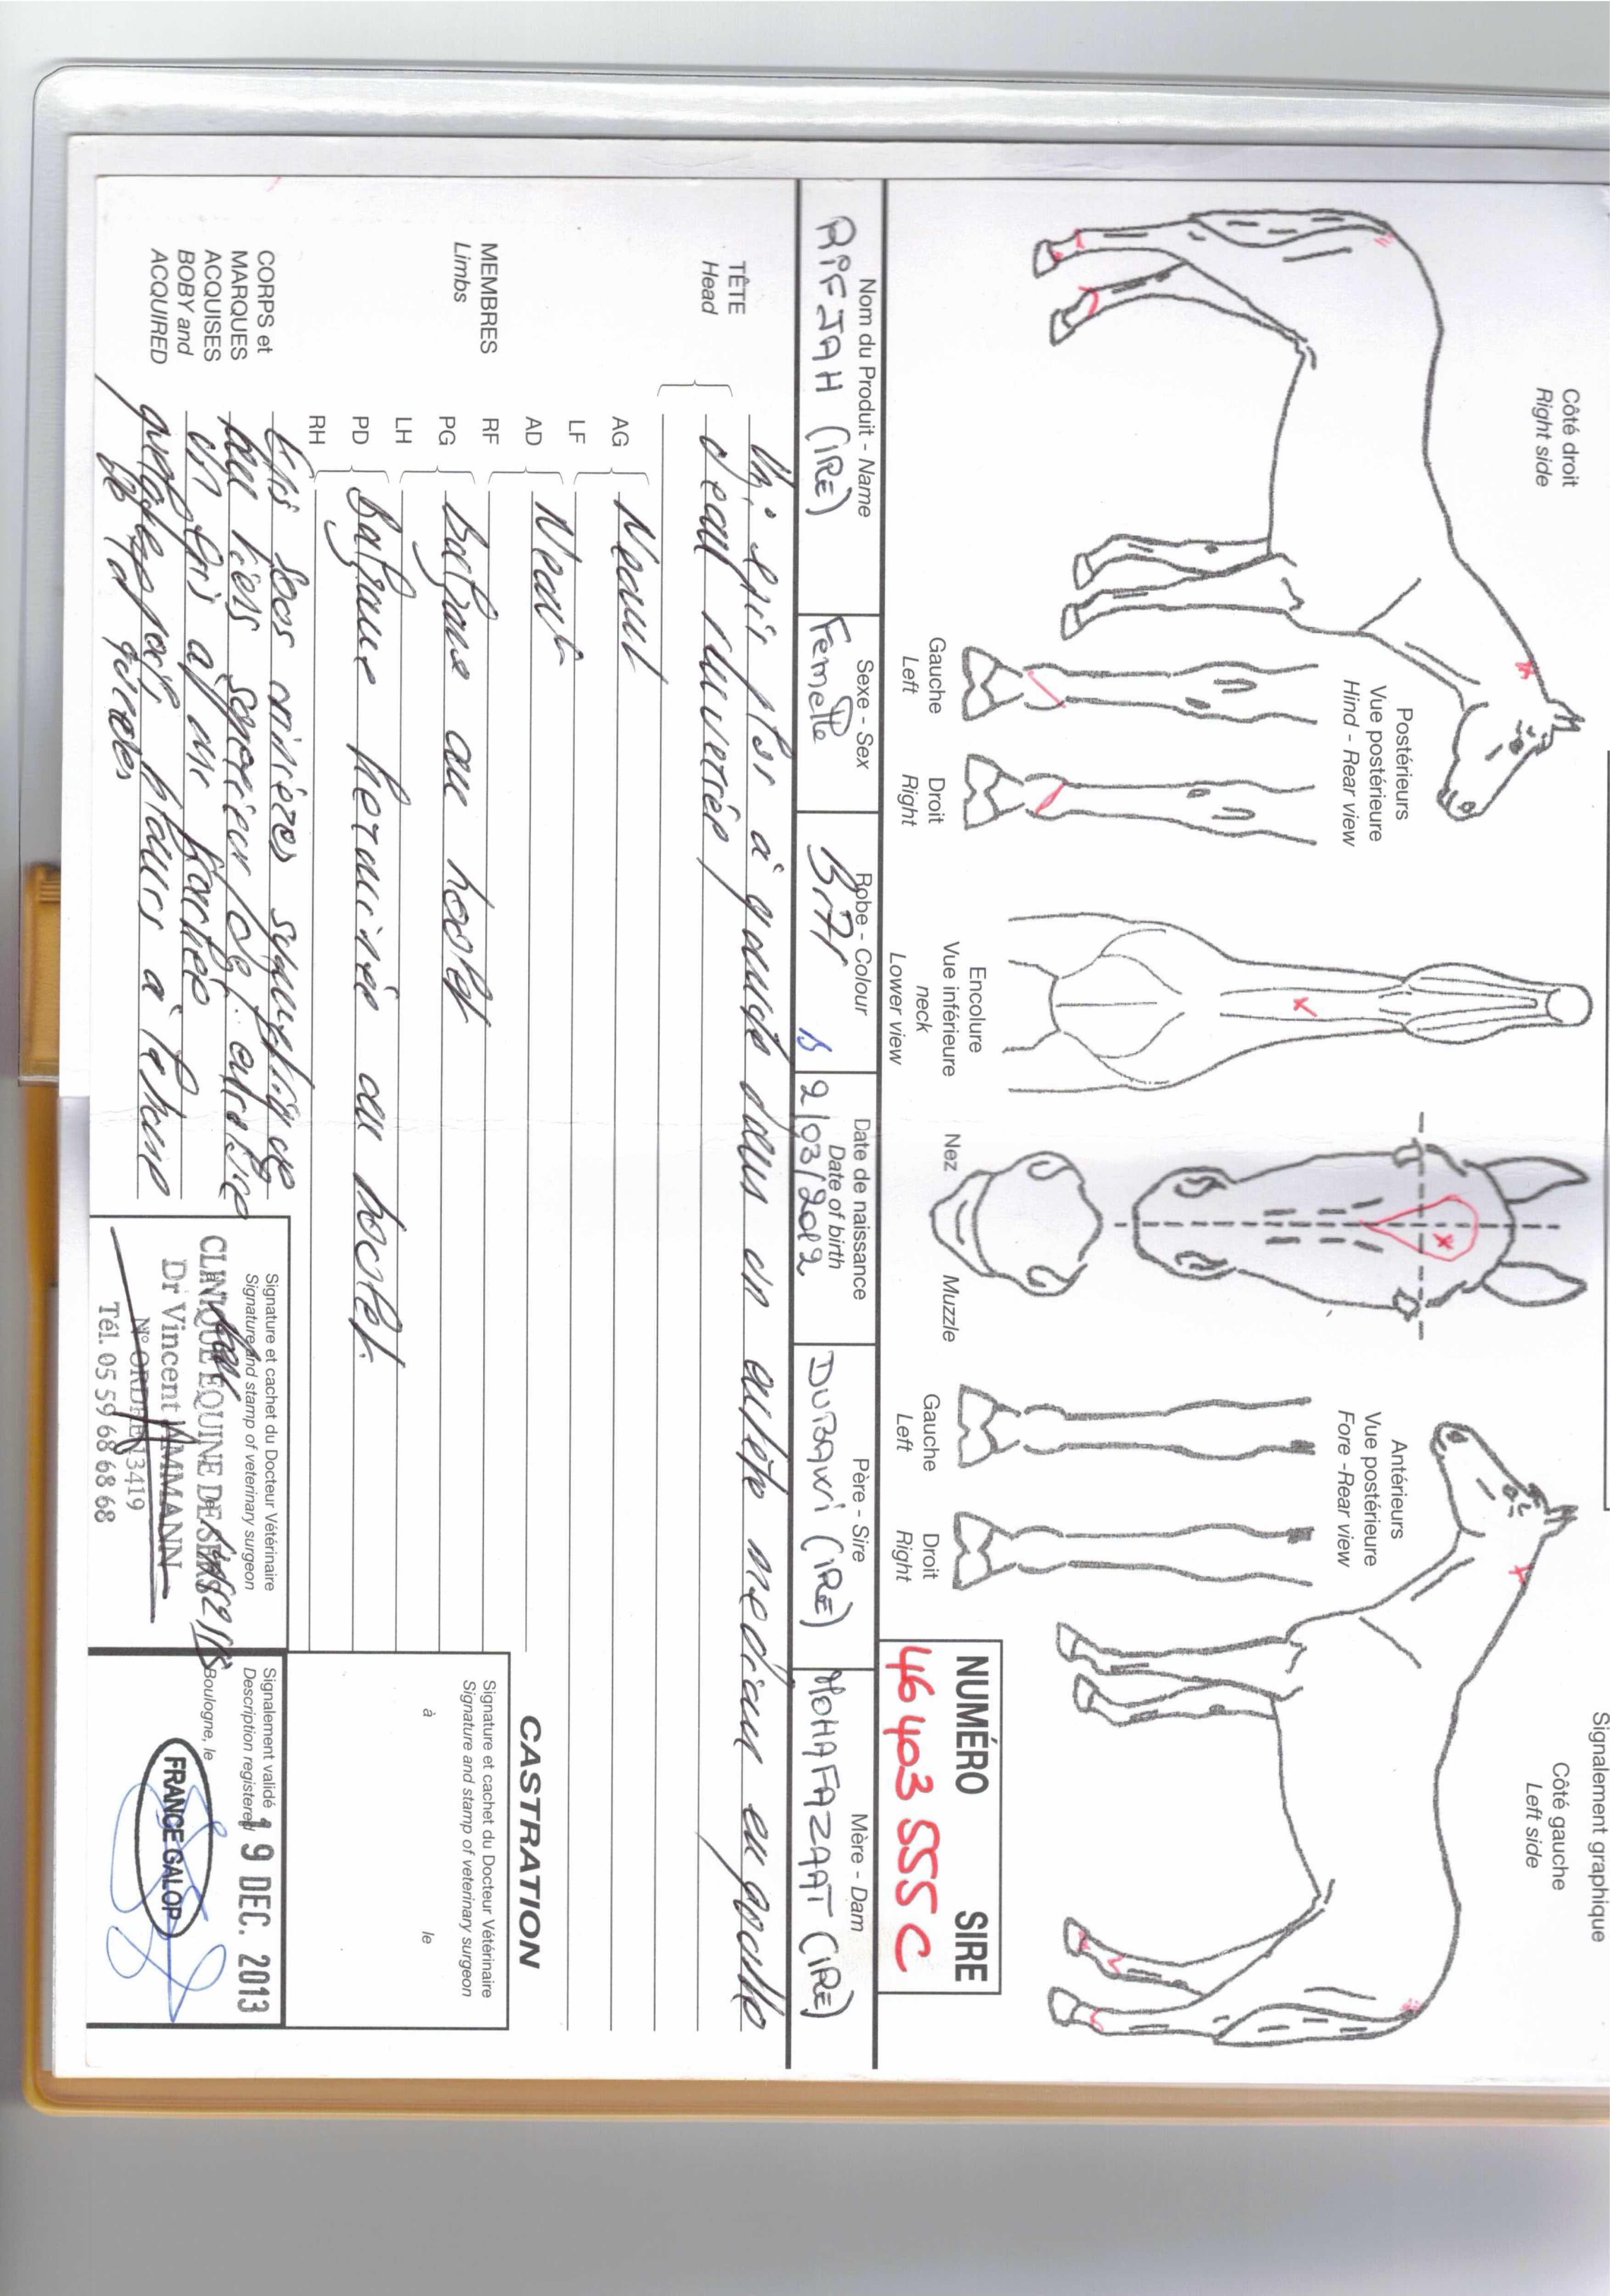 Signalement graphique
Côté droit
Right side
Côté gauche
Left side
Postérieurs
Vue postérieure
Hind - Rear view
Gauche
Left
Droit
Right
Encolure
Vue inférieure
neck
Lower view
Nez
Muzzle
Antérieurs
Vue postérieure
Fore -Rear view
Gauche
Left
Droit
Right
NUMÉRO SIRE
46 403 555 C
Nom du Produit - Name
RIFJAH (IRE)
Sexe - Sex
Femelle
Robe - Colour
Date de naissance
Date of birth
2/03/2012
Père - Sire
DUBAWI (IRE)
Mère - Dam
MOHAFAZAAT (IRE)
TÊTE
Head
à gauche dans un entête médian en goutte
d'eau inversée
MEMBRES
Limbs
AG
LF
Neant
AD
RF
Neant
PG
LH
balzane au boulet
PD
RH
Balzane herminée au boulet.
CORPS et
MARQUES
ACQUISES
BOBY and
ACQUIRED
Epis sous
au tiers supérieur
un épi
quelques poils blancs à
CASTRATION
Signature et cachet du Docteur Vétérinaire
Signature and stamp of veterinary surgeon
à le
Signature et cachet du Docteur Vétérinaire
Signature and stamp of veterinary surgeon
CLINIQUE EQUINE DE
Dr Vincent AMMANN
N° ORDRE 13419
Tél. 05 59 68 68 68
Signalement validé
Description registered
19 DEC. 2013
Boulogne, le
FRANCE GALOP